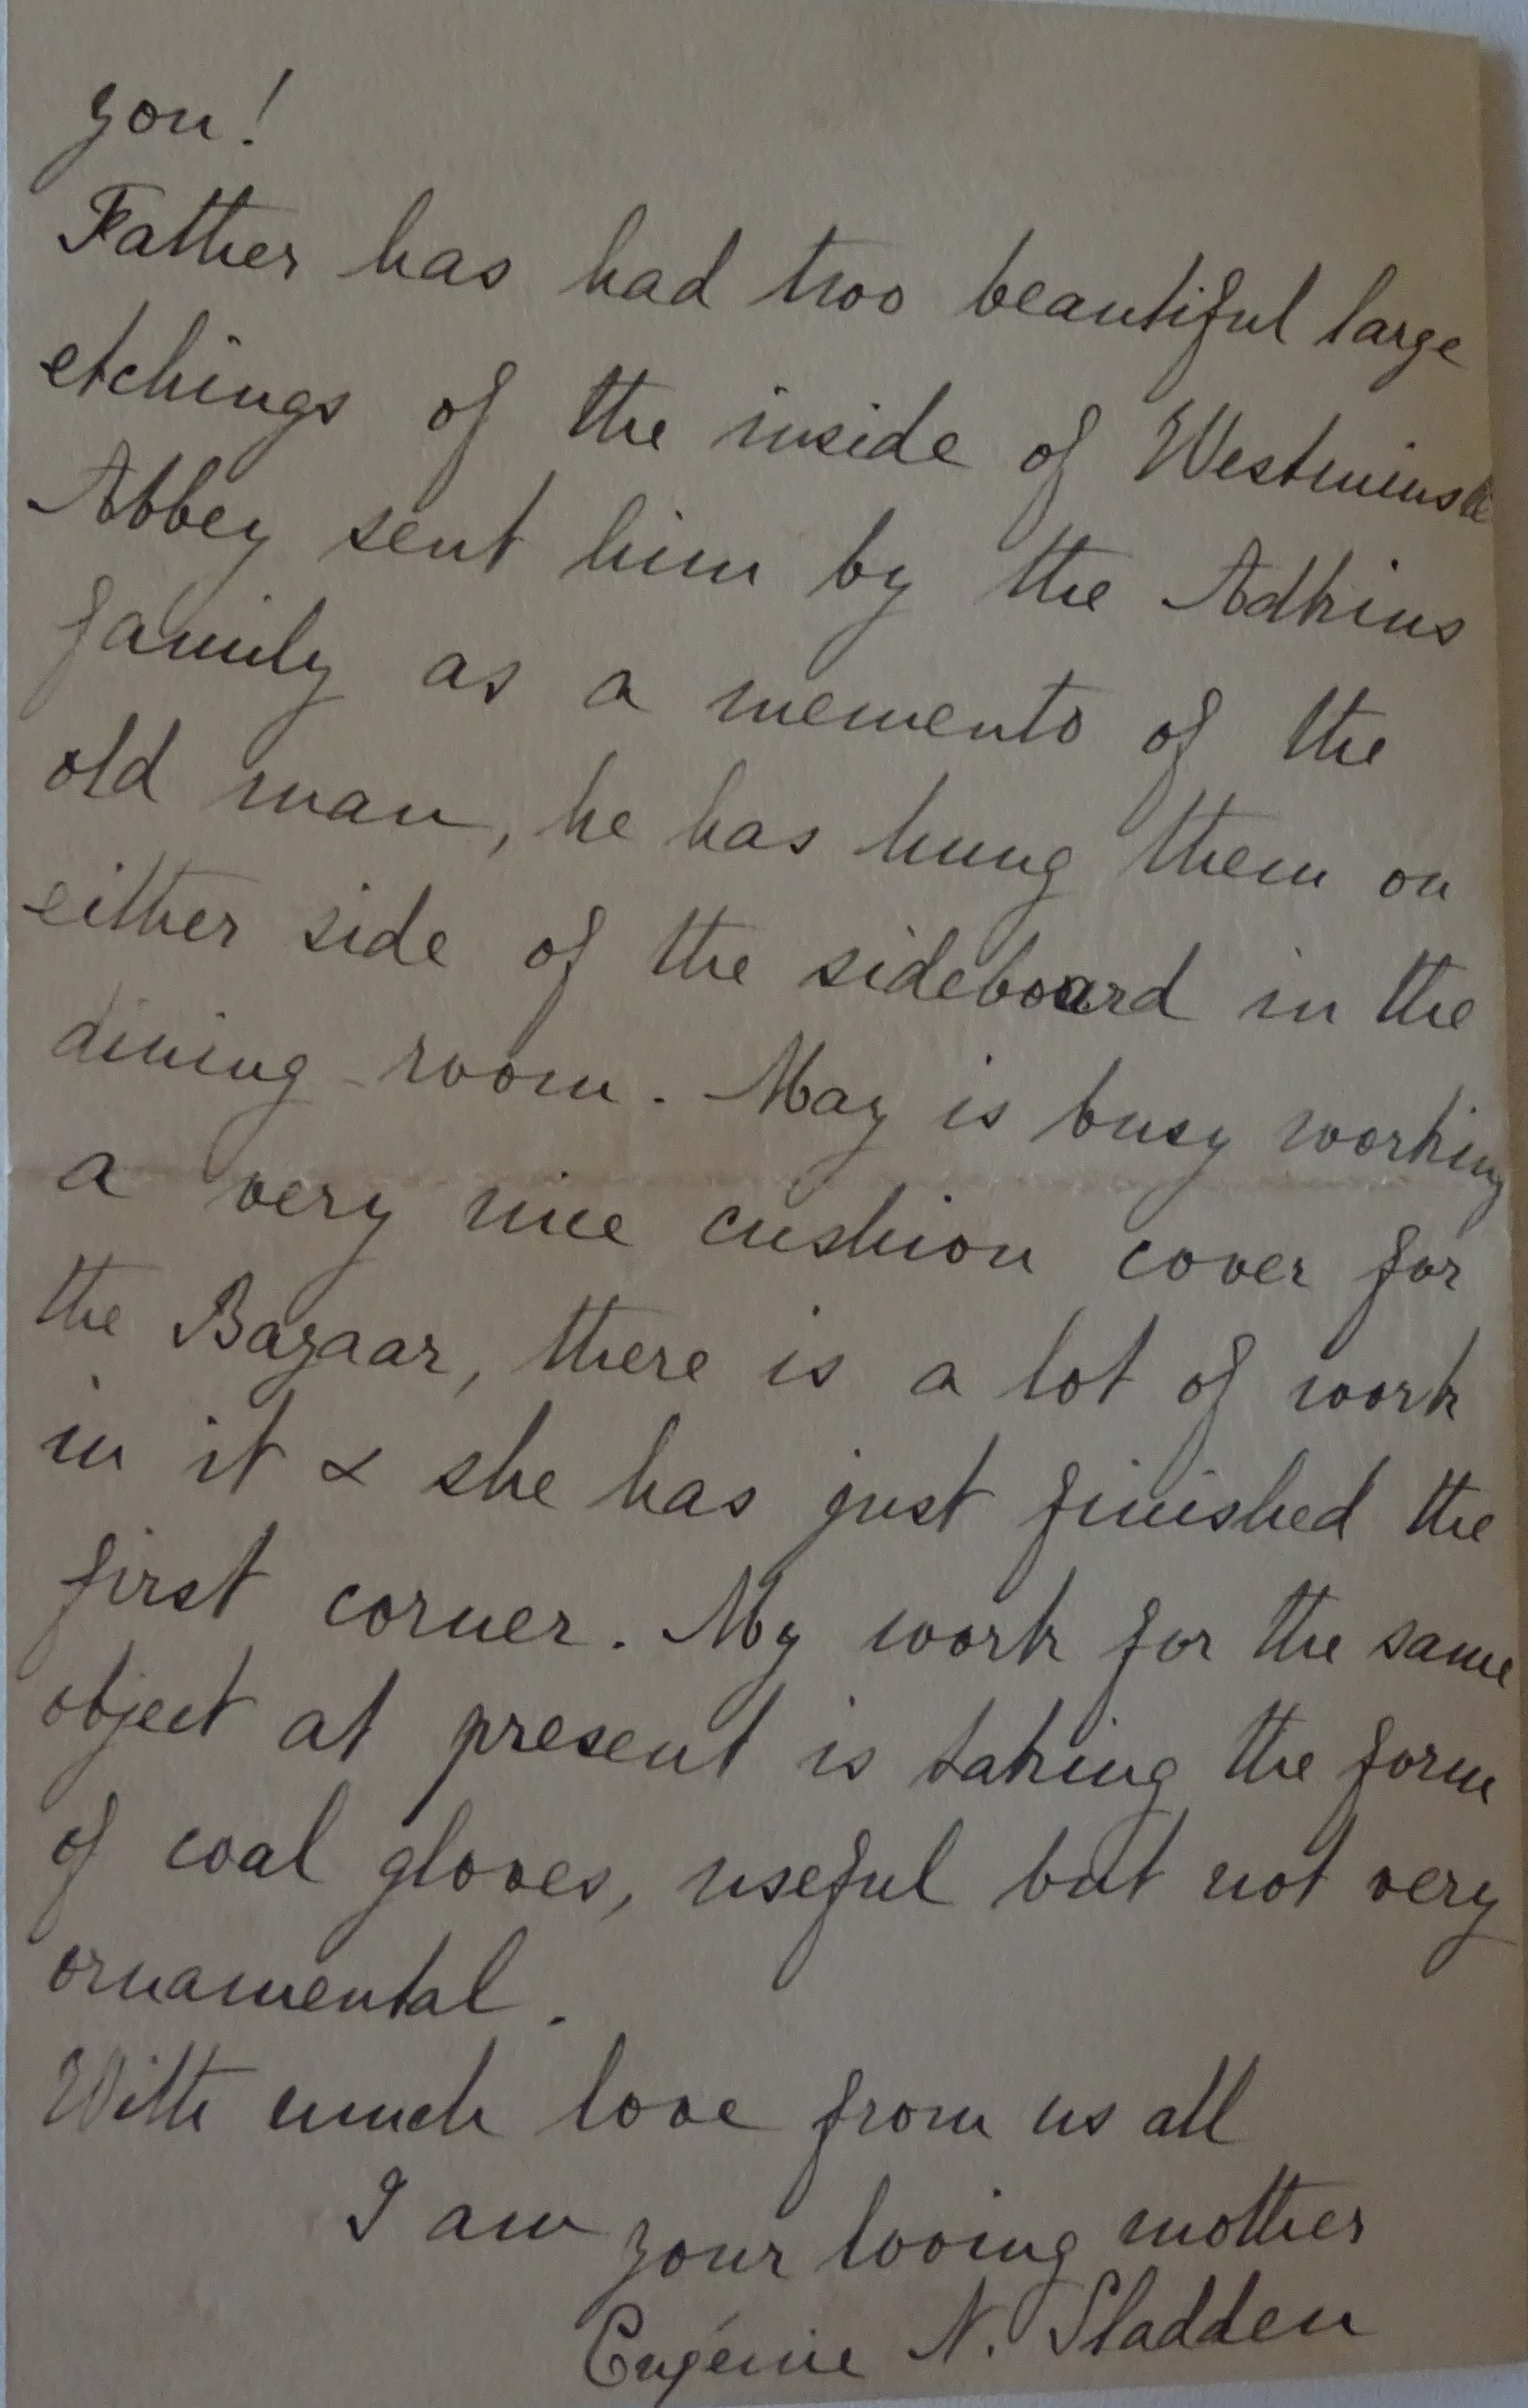 you!
Father has had two beautiful large
etchings of the inside of Westminster
Abbey sent him by the Adkins
family as a memento of the
old man, he has hung them on
either side of the sideboard in the
dining-room. May is busy working
a very nice cushion cover for
the Bazaar, there is a lot of work
in it & she has just finished the
first corner. My work for the same
object at present is taking the form
of coal gloves, useful but not very
ornamental.
With much love from us all
I am your loving mother
Eugénie N. Sladden